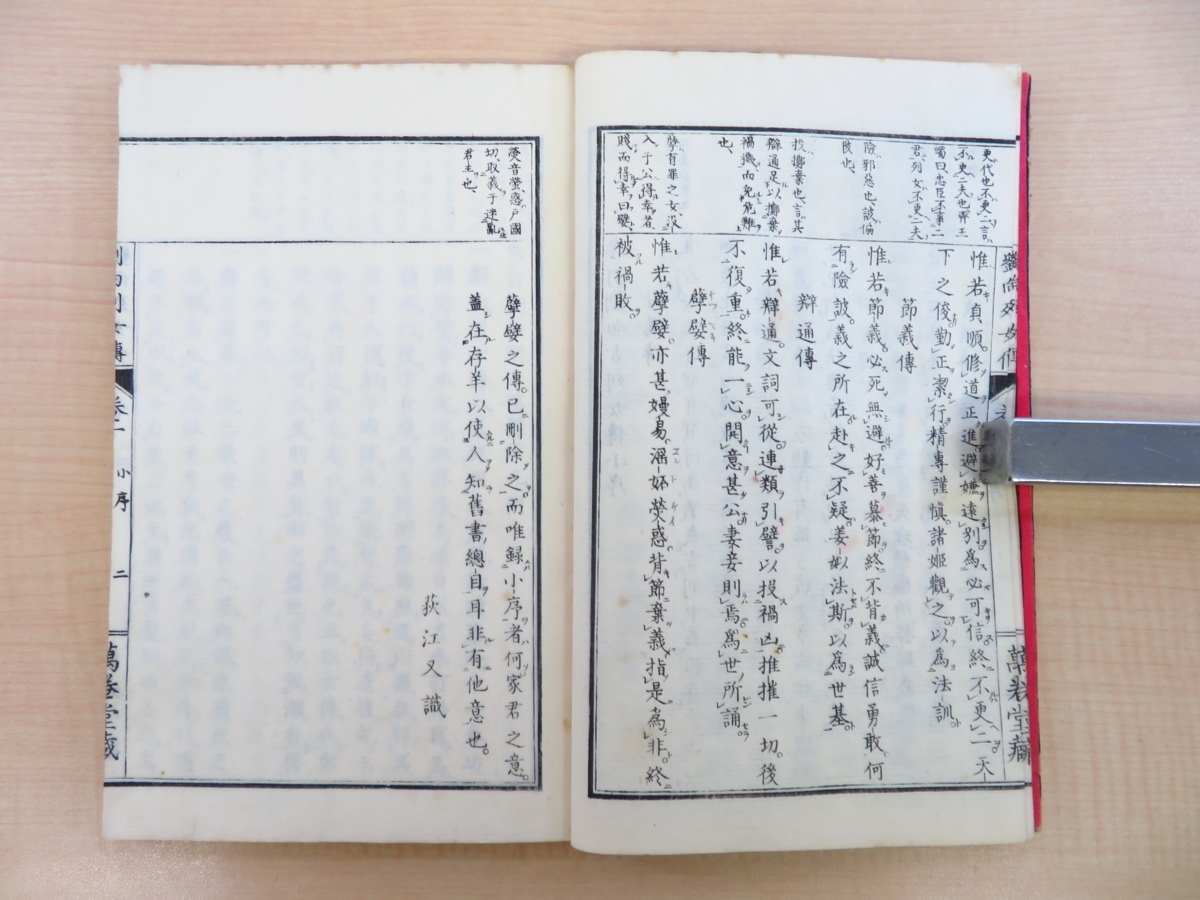 更代也不更二言
不更二夫也齊王
蠋曰忠臣不事二
君列女不更二夫
險邪惡也詖偏
陂也
投擲棄也言其
辯通足以擲棄
禍機而免危難
也
孽有罪之女沒
入于公得幸者
賤而得幸曰嬖
惟若貞順修道正進避嫌遠別為必可信終不更二天
下之俊勤正潔行精專謹慎諸姬觀之以為法訓
節義傳
惟若節義必死無避好善慕節終不背義誠信勇敢何
有險詖義之所在赴之不疑姜姒法斯以為世基
辯通傳
惟若辯通文詞可從連類引譬以投禍凶推摧一切後
不復重終能一心開意甚公妻妾則焉為世所誦
孽嬖傳
惟若孽嬖亦甚嫚易淫妬熒惑背節棄義指是為非終
被禍敗
劉向列女傳
萬卷堂藏
熒音螢惑戶國
切取義于迷亂
君主也
孽嬖之傳已刪除之而唯錄小序者何家君之意
蓋在存羊以使人知舊書總目耳非有他意也
荻江又識
劉向列女傳
卷二
小序
二
萬卷堂藏